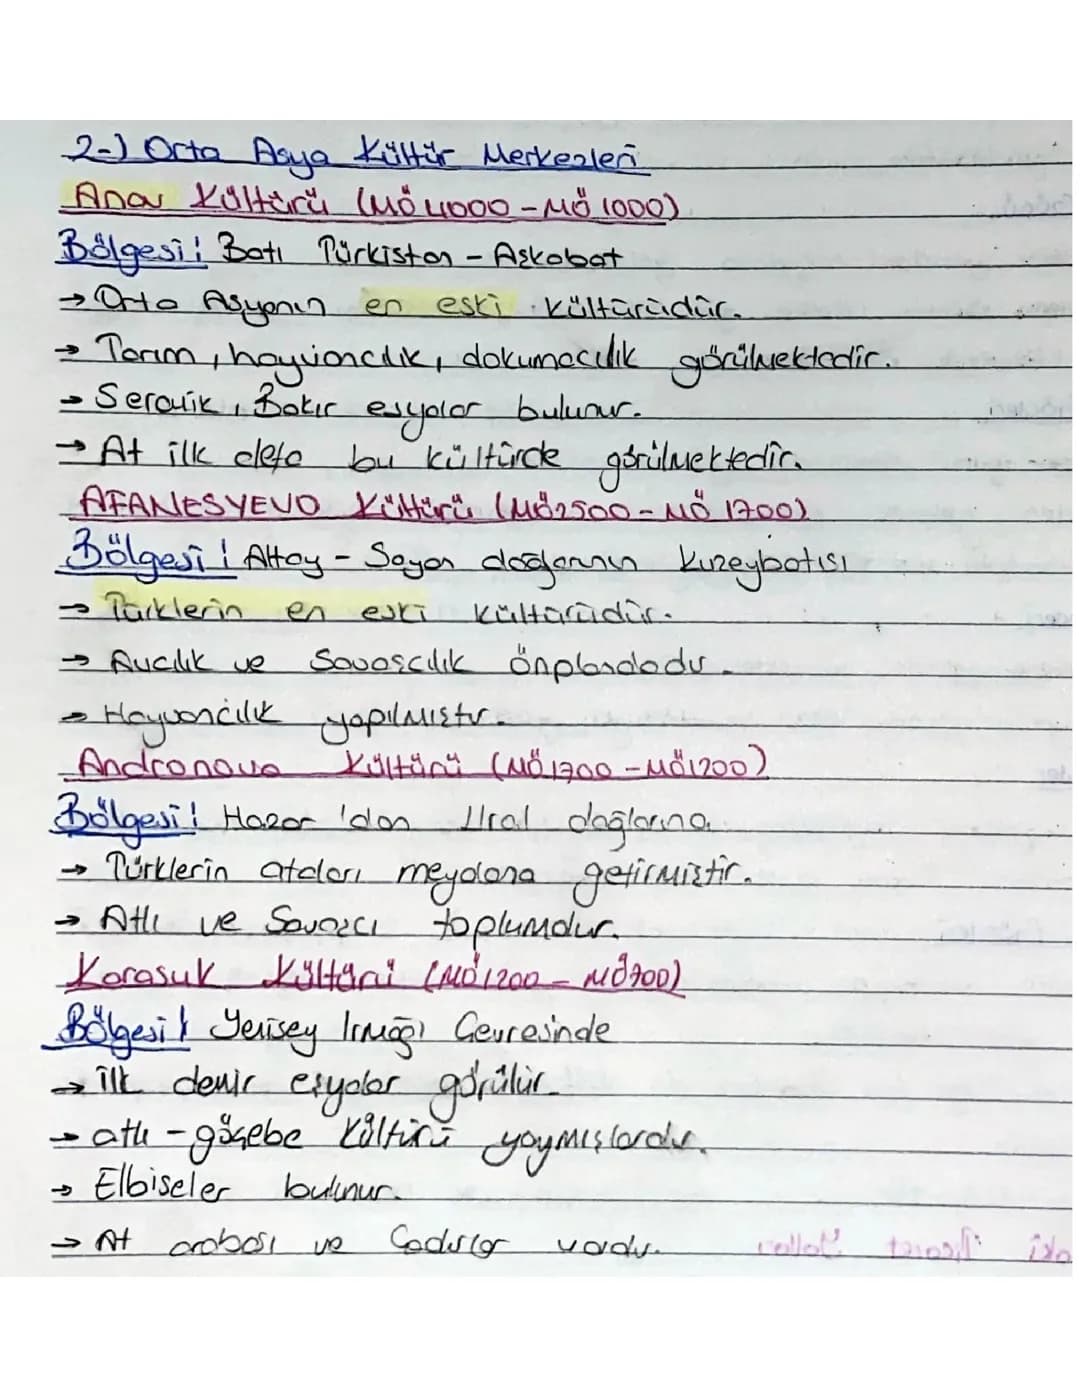 2-) Orta Asya Kültür Merkezleri
Anav Kültürü (MÖ 4000 - MÖ 1000)
Bölgesi: Batı Türkistan - Aşkabat
→ Orta Asyanın en eski kültürüdür.
→ Tarım, hayvancılık, dokumacılık görülmektedir.
→ Seramik, Bakır eşyalar bulunur.
→ At ilk defa bu kültürde görülmektedir.
AFANESYEVO Kültürü (MÖ2500 - MÖ 1700)
Bölgesi: Altay - Sayan dağlarının Kuzeybatısı
→ Türklerin en eski kültürüdür.
→ Avcılık ve Savaşcılık önplandadır.
→ Hayvancılık yapılmıştır.
Andronova Kültürü (MÖ 1700 - MÖ1200)
Bölgesi: Hazar'dan Ural dağlarına.
→ Türklerin ataları meydana getirmiştir.
→ Atlı ve Savaşcı toplumdur.
Karasuk Kültürü (MÖ1200 - MÖ700)
Bölgesi: Yenisey Irmağı Çevresinde
→ ilk demir eşyalar görülür.
→ atlı - göçebe kültürü yaymışlardır.
→ Elbiseler bulunur.
→ At arabası ve Çadırlar vardır.